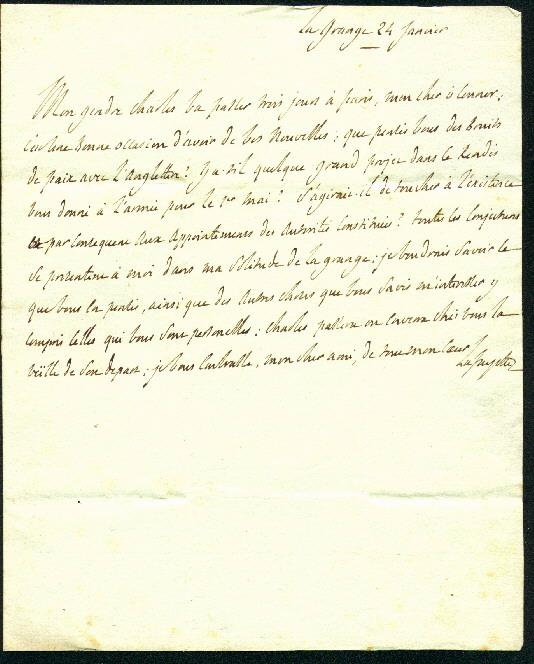 La Grange 24 janvier
Mon gendre Charles va passer trois jours à paris, mon cher o Connor;
c'est une bonne occasion d'avoir de vos nouvelles; que pensés vous des bruits
de paix avec l'Angleterre? Y a-t-il quelque grand projet dans le rendés
vous donné à l'armée pour le 1er mai? S'agiroit-il de toucher à l'existence
et par consequent aux appointemens des autorités constituées? toutes les conjectures
se presentent à moi dans ma solitude de la grange; je voudrois savoir ce
que vous en pensés, ainsi que des autres choses que vous savés m'interesser y
compris celles qui vous sont personelles; Charles passera ou enverra chés vous la
veille de son depart; je vous embrasse, mon cher ami, de tout mon coeur
Lafayette